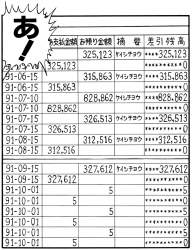 あ!
お支払金額 お預り金額 摘要 差引残高
325,123 ケイシチョウ ****325,123
325,123 *********0
91-06-15 315,863 ケイシチョウ ****315,863
91-06-15 315,863 *********0
91-07-10 828,862 ケイシチョウ ****828,862
91-07-10 828,862 *********0
91-07-15 326,513 ケイシチョウ ****326,513
91-07-15 326,513 *********0
91-08-15 312,516 ケイシチョウ ****312,516
91-08-15 312,516 *********0
91-09-15 327,612 ケイシチョウ ****327,612
91-09-15 327,612 *********0
91-10-01 5 *********5
91-10-01 5 *********0
91-10-01 5 *********5
91-10-01 5 *********0
91-10-01 5 *********5
91-10-01 5 *********0